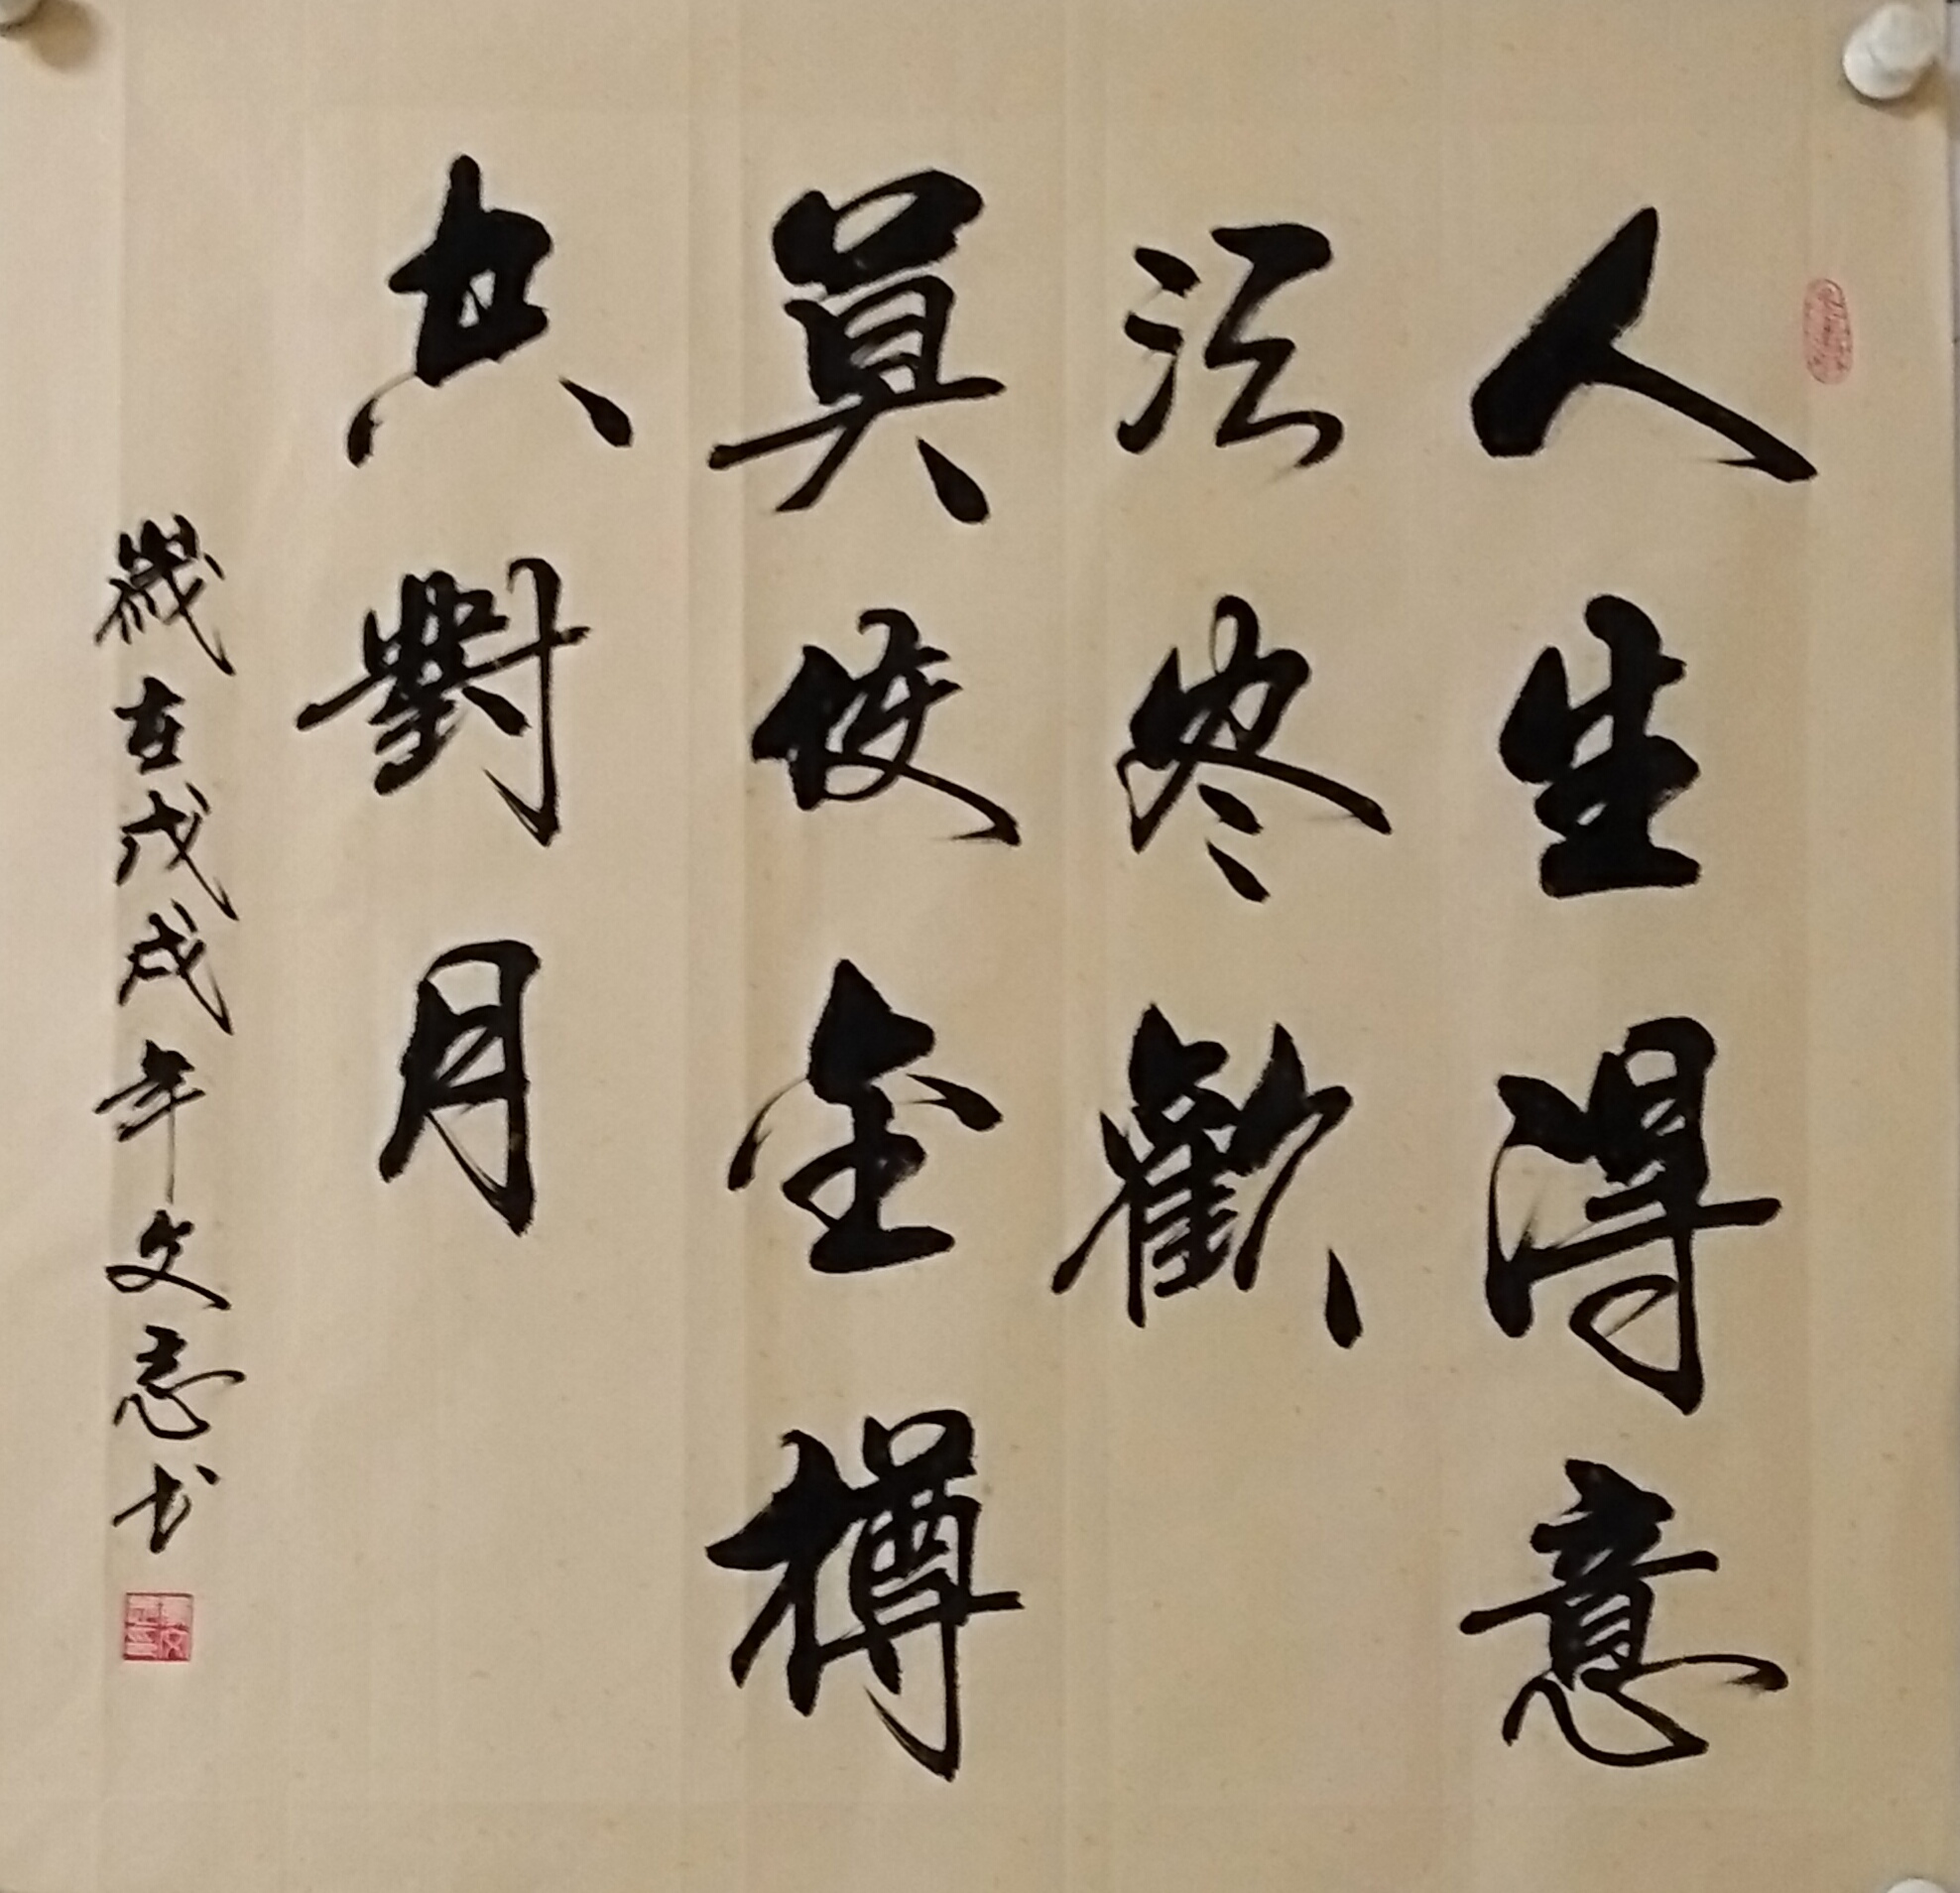 人生得意
须尽歡
莫使金樽
共對月
歲在戊戌年文志书